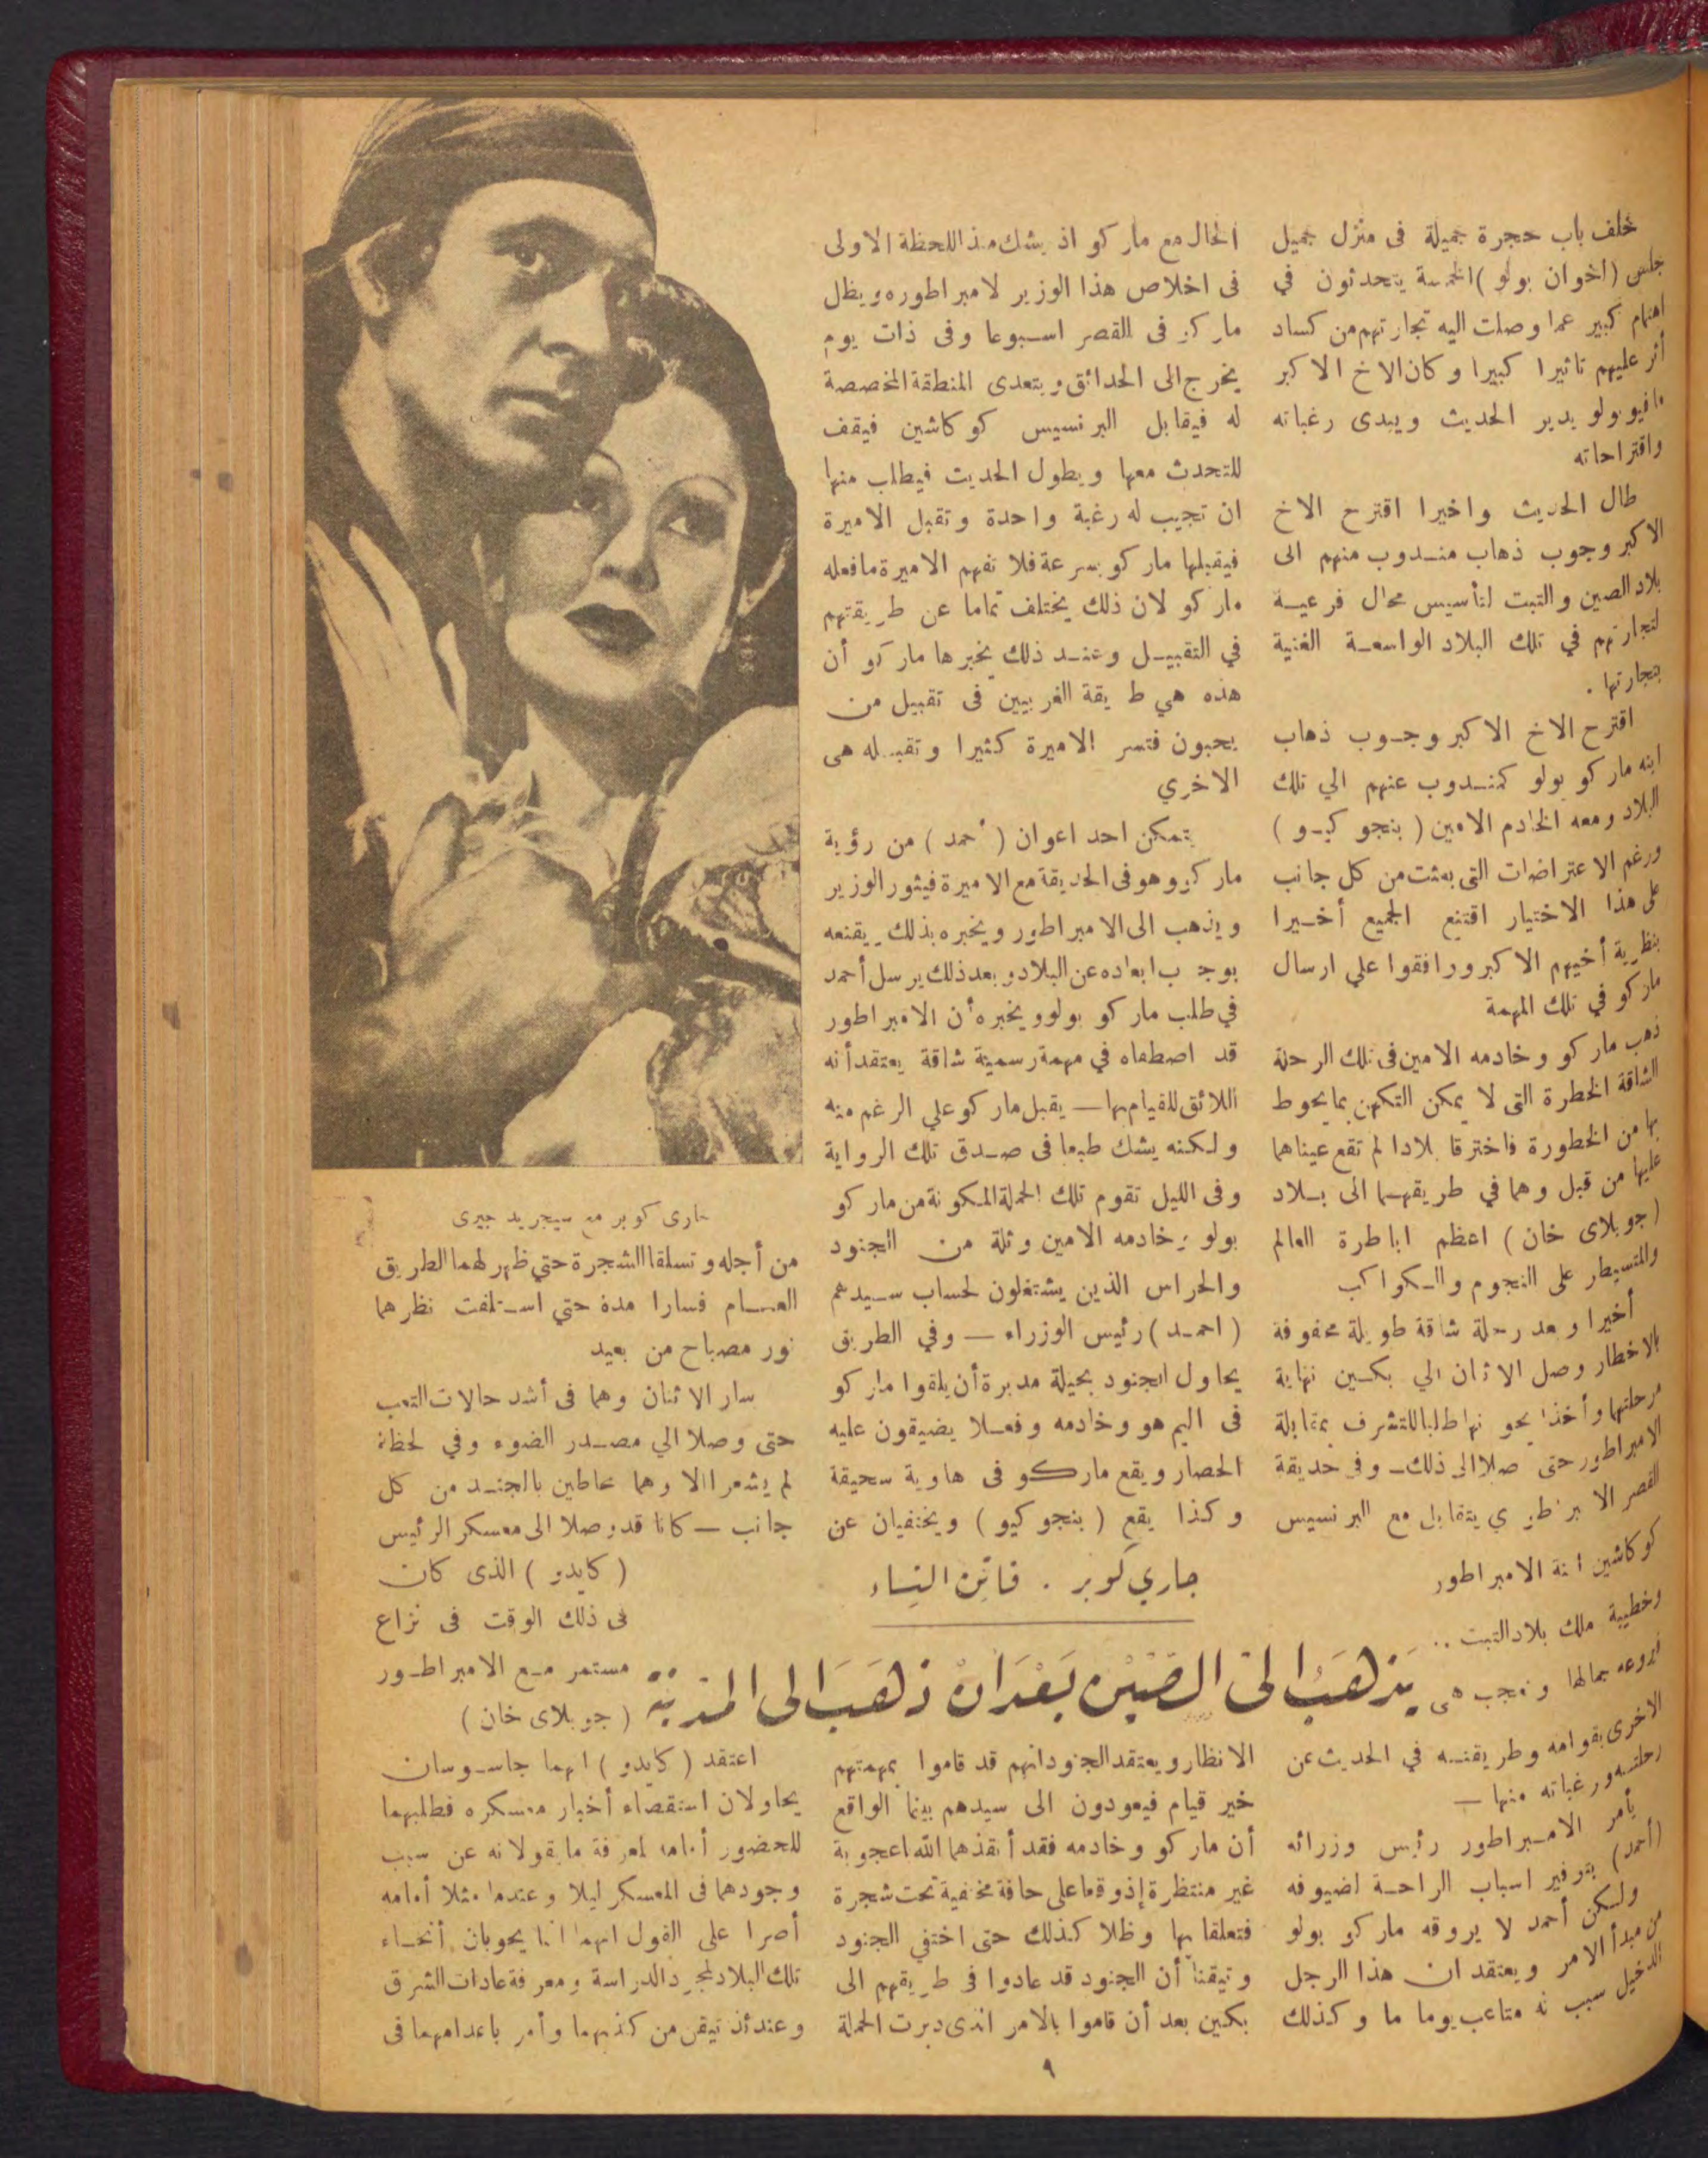 خلف باب حجرة جميلة فى منزل جميل
جلس (اخوان بولو) الخمسة يتحدثون في
اهتمام كبير عما وصلت اليه تجارتهم من كساد
أثر عليهم تاثيرا كبيرا وكان الاخ الاكبر
مافيو بولو يدير الحديث ويبدى رغباته
واقتراحاته
طال الحديث واخيرا اقترح الاخ
الاكبر وجوب ذهاب منـدوب منهم الى
بلاد الصين والتبت لتأسيس محال فرعيـة
لتجارتهم في تلك البلاد الواسعـة الغنية
بتجارتها .
اقترح الاخ الاكبر وجـوب ذهاب
ابنه ماركو بولو كمنـدوب عنهم الي تلك
البلاد ومعه الخادم الامين ( بنجو كيـو )
ورغم الاعتراضات التى بعثت من كل جانب
على هذا الاختيار اقتنع الجميع أخـيرا
بنظرية أخيهم الاكبر ورافقوا علي ارسال
ماركو في تلك المهمة
ذهب ماركو وخادمه الامين فى تلك الرحلة
الشاقة الخطرة التى لا يمكن التكهن بما يحوط
بها من الخطورة فاخترقا بلادا لم تقع عيناهما
عليها من قبل وهما في طريقهـما الى بـلاد
( جوبلاى خان ) اعظم اباطرة العالم
والمتسيطر على النجوم والـكواكب
أخيرا وبعد رحلة شاقة طويلة محفوفة
بالاخطار وصل الاثنان الي بكـين نهاية
مرحلتها وأخذا يحو نها طلبا للتشرف بمقابلة
الامبراطور حتى صلا الى ذلك ـ وفى حديقة
القصر الامبراطوري يتقابل مع البرنسيس
كوكاشين ابنة الامبراطور
وخطيبة ملك بلاد التبت ..
فيروعه جمالها وتعجب هى
الاخرى بقوامه وطريقتـه في الحديث عن
رحلتـه ورغباته منها —
يأمر الامـبراطور رئيس وزرائه
(أحمد) بتوفير اسباب الراحـة لضيوفه
ولـكن أحمد لا يروقه ماركو بولو
من مبدأ الامر ويعتقد ان هذا الرجل
الدخيل سبب له متاعب يوما ما وكذلك
الحال مع ماركو اذ يشك منذ اللحظة الاولى
فى اخلاص هذا الوزير لامبراطوره ويظل
ماركو فى القصر اسـبوعا وفى ذات يوم
يخرج الى الحدائق ويتعدى المنطقة المخصصة
له فيقابل البرنسيس كوكاشين فيقف
للتحدث معها ويطول الحديث فيطلب منها
ان تجيب له رغبة واحدة وتقبل الاميرة
فيقبلها ماركو بسرعة فلا تفهم الاميرة ما فعله
ماركو لان ذلك يختلف تماما عن طريقتهم
في التقبيـل وعنـد ذلك يخبرها ماركو أن
هذه هي ط يقة الغربيين فى تقبيل من
يحبون فتسر الاميرة كثيرا وتقبـله هى
الاخري
يتمكن احد اعوان ( أحمد ) من رؤية
ماركو وهو فى الحديقة مع الاميرة فيثور الوزير
ويذهب الى الامبراطور ويخبره بذلك ويقنعه
بوجوب ابعاده عن البلاد وبعد ذلك يرسل أحمد
في طلب ماركو بولو ويخبره أن الامبراطور
قد اصطفاه في مهمة رسمية شاقة يعتقد أنه
اللائق للقيام بها — يقبل ماركو علي الرغم منه
ولـكنه يشك طبعا فى صـدق تلك الرواية
وفى الليل تقوم تلك الحملة المـكونة من ماركو
بولو وخادمه الامين وثلة من الجنود
والحراس الذين يشتغلون لحساب سـيدهم
( احمـد ) رئيس الوزراء — وفي الطريق
يحاول الجنود بحيلة مدبرة أن يلقوا ماركو
فى اليم هو وخادمه وفعـلا يضيقون عليه
الحصار ويقع ماركو فى هاوية سحيقة
وكذا يقع ( بنجو كيو ) ويختفيان عن
جاري كوبر . فاتن النساء
يذهب الى الصين بعد ان ذهب الى المدينة
الانظار ويعتقد الجنود انهم قد قاموا بمهمتهم
خير قيام فيعودون الى سيدهم بينما الواقع
أن ماركو وخادمه فقد أنقذهما الله اعجوبة
غير منتظرة إذ وقعا على حافة مختفية تحت شجرة
فتعلقا بها وظلا كذلك حتى اختفي الجنود
وتيقنا أن الجنود قد عادوا فى طريقهم الى
بكين بعد أن قاموا بالامر الذى دبرت الحملة
جارى كوبر مع سيجريد جيرى
من أجله وتسلقا الشجرة حتي ظهر لهما الطريق
العـام فسارا مدة حتي اسـتلفت نظرهما
نور مصباح من بعيد
سار الاثنان وهما فى أشد حالات التعب
حتى وصلا الي مصـدر الضوء وفي لحظة
لم يشعرا الا وهما محاطين بالجنـد من كل
جانب — كانا قد وصلا الى معسكر الرئيس
( كايدو ) الذى كان
فى ذلك الوقت فى نزاع
مستمر مـع الامبراطـور
( جوبلاى خان )
اعتقد ( كايدو ) انهما جاسـوسان
يحاولان استقصاء أخبار معسكره فطلبهما
للحضور أمامه لمعرفة ما يقولانه عن سبب
وجودهما فى المعسكر ليلا وعندما مثلا أمامه
أصرا على القول انهما انما يحوبان أنحـاء
تلك البلاد لمجرد الدراسة ومعرفة عادات الشرق
وعندئذ تيقن من كذبهما وأمر باعدامهما فى
٩